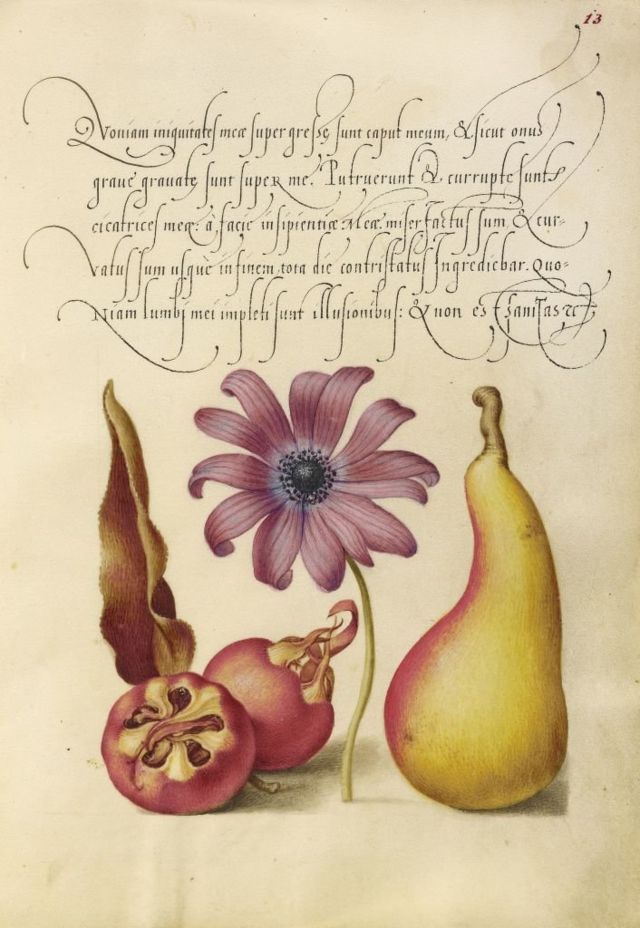 13
Quoniam iniquitates meæ supergressę sunt caput meum, & sicut onus
graue grauatę sunt super me. Putruerunt & currupte sunt
cicatrices meæ: à facie insipientiæ Meæ. miser factus sum, & cur-
Vatus sum usque in finem, tota die contristatus Ingrediebar. Quo-
Niam lumbi mei impleti sunt illusionibus: & non est sanitas &c